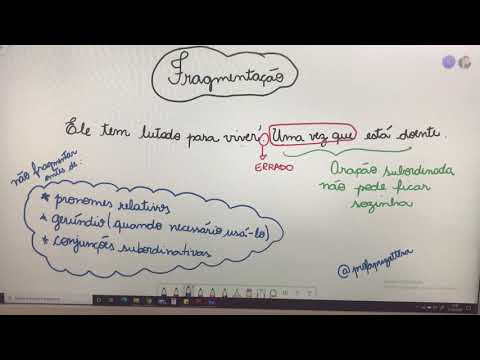 Fragmentação
Ele tem lutado para viver. Uma vez que está doente.
ERRADO
Oração subordinada
não pode ficar
sozinha
não fragmentar
antes de:
* pronomes relativos
* gerúndio (quando necessário usá-lo)
* conjunções subordinativas